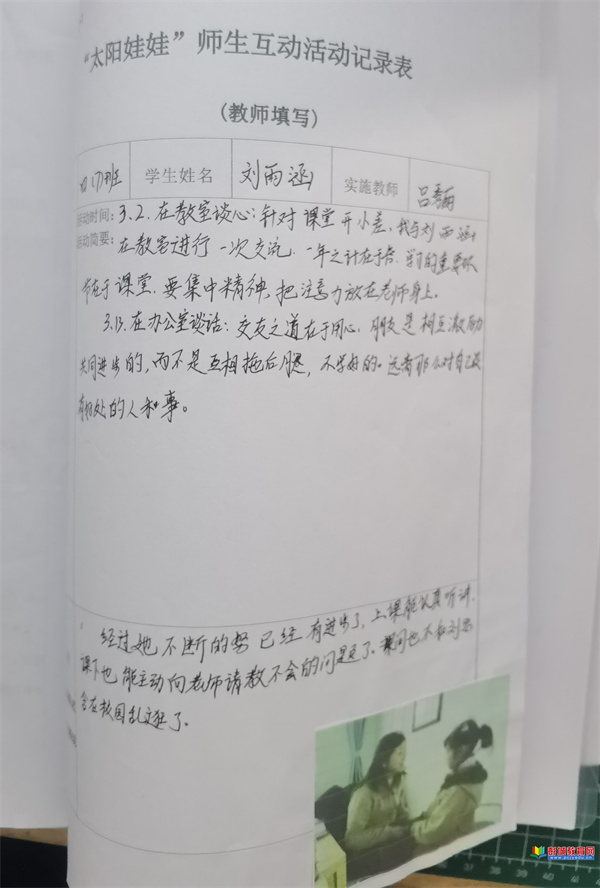 “太阳娃娃”师生互动活动记录表
(教师填写)
四(7)班 学生姓名 刘雨涵 实施教师 吕
活动时间: 3.2.在教室谈心:针对课堂开小差,我与刘雨涵
活动简要: 在教室进行一次交流.一年之计在于春.学习的重要环
节在于课堂.要集中精神,把注意力放在老师身上。
3.13.在办公室谈话:交友之道在于用心,朋友是相互激励
共同进步的,而不是互相拖后腿,不学好的。远离那么对自己没
有好处的人和事。
经过她不断的努 已经有进步了,上课能认真听讲.
课下也能主动向老师请教不会的问题了.课间也不
会在校园乱逛了。